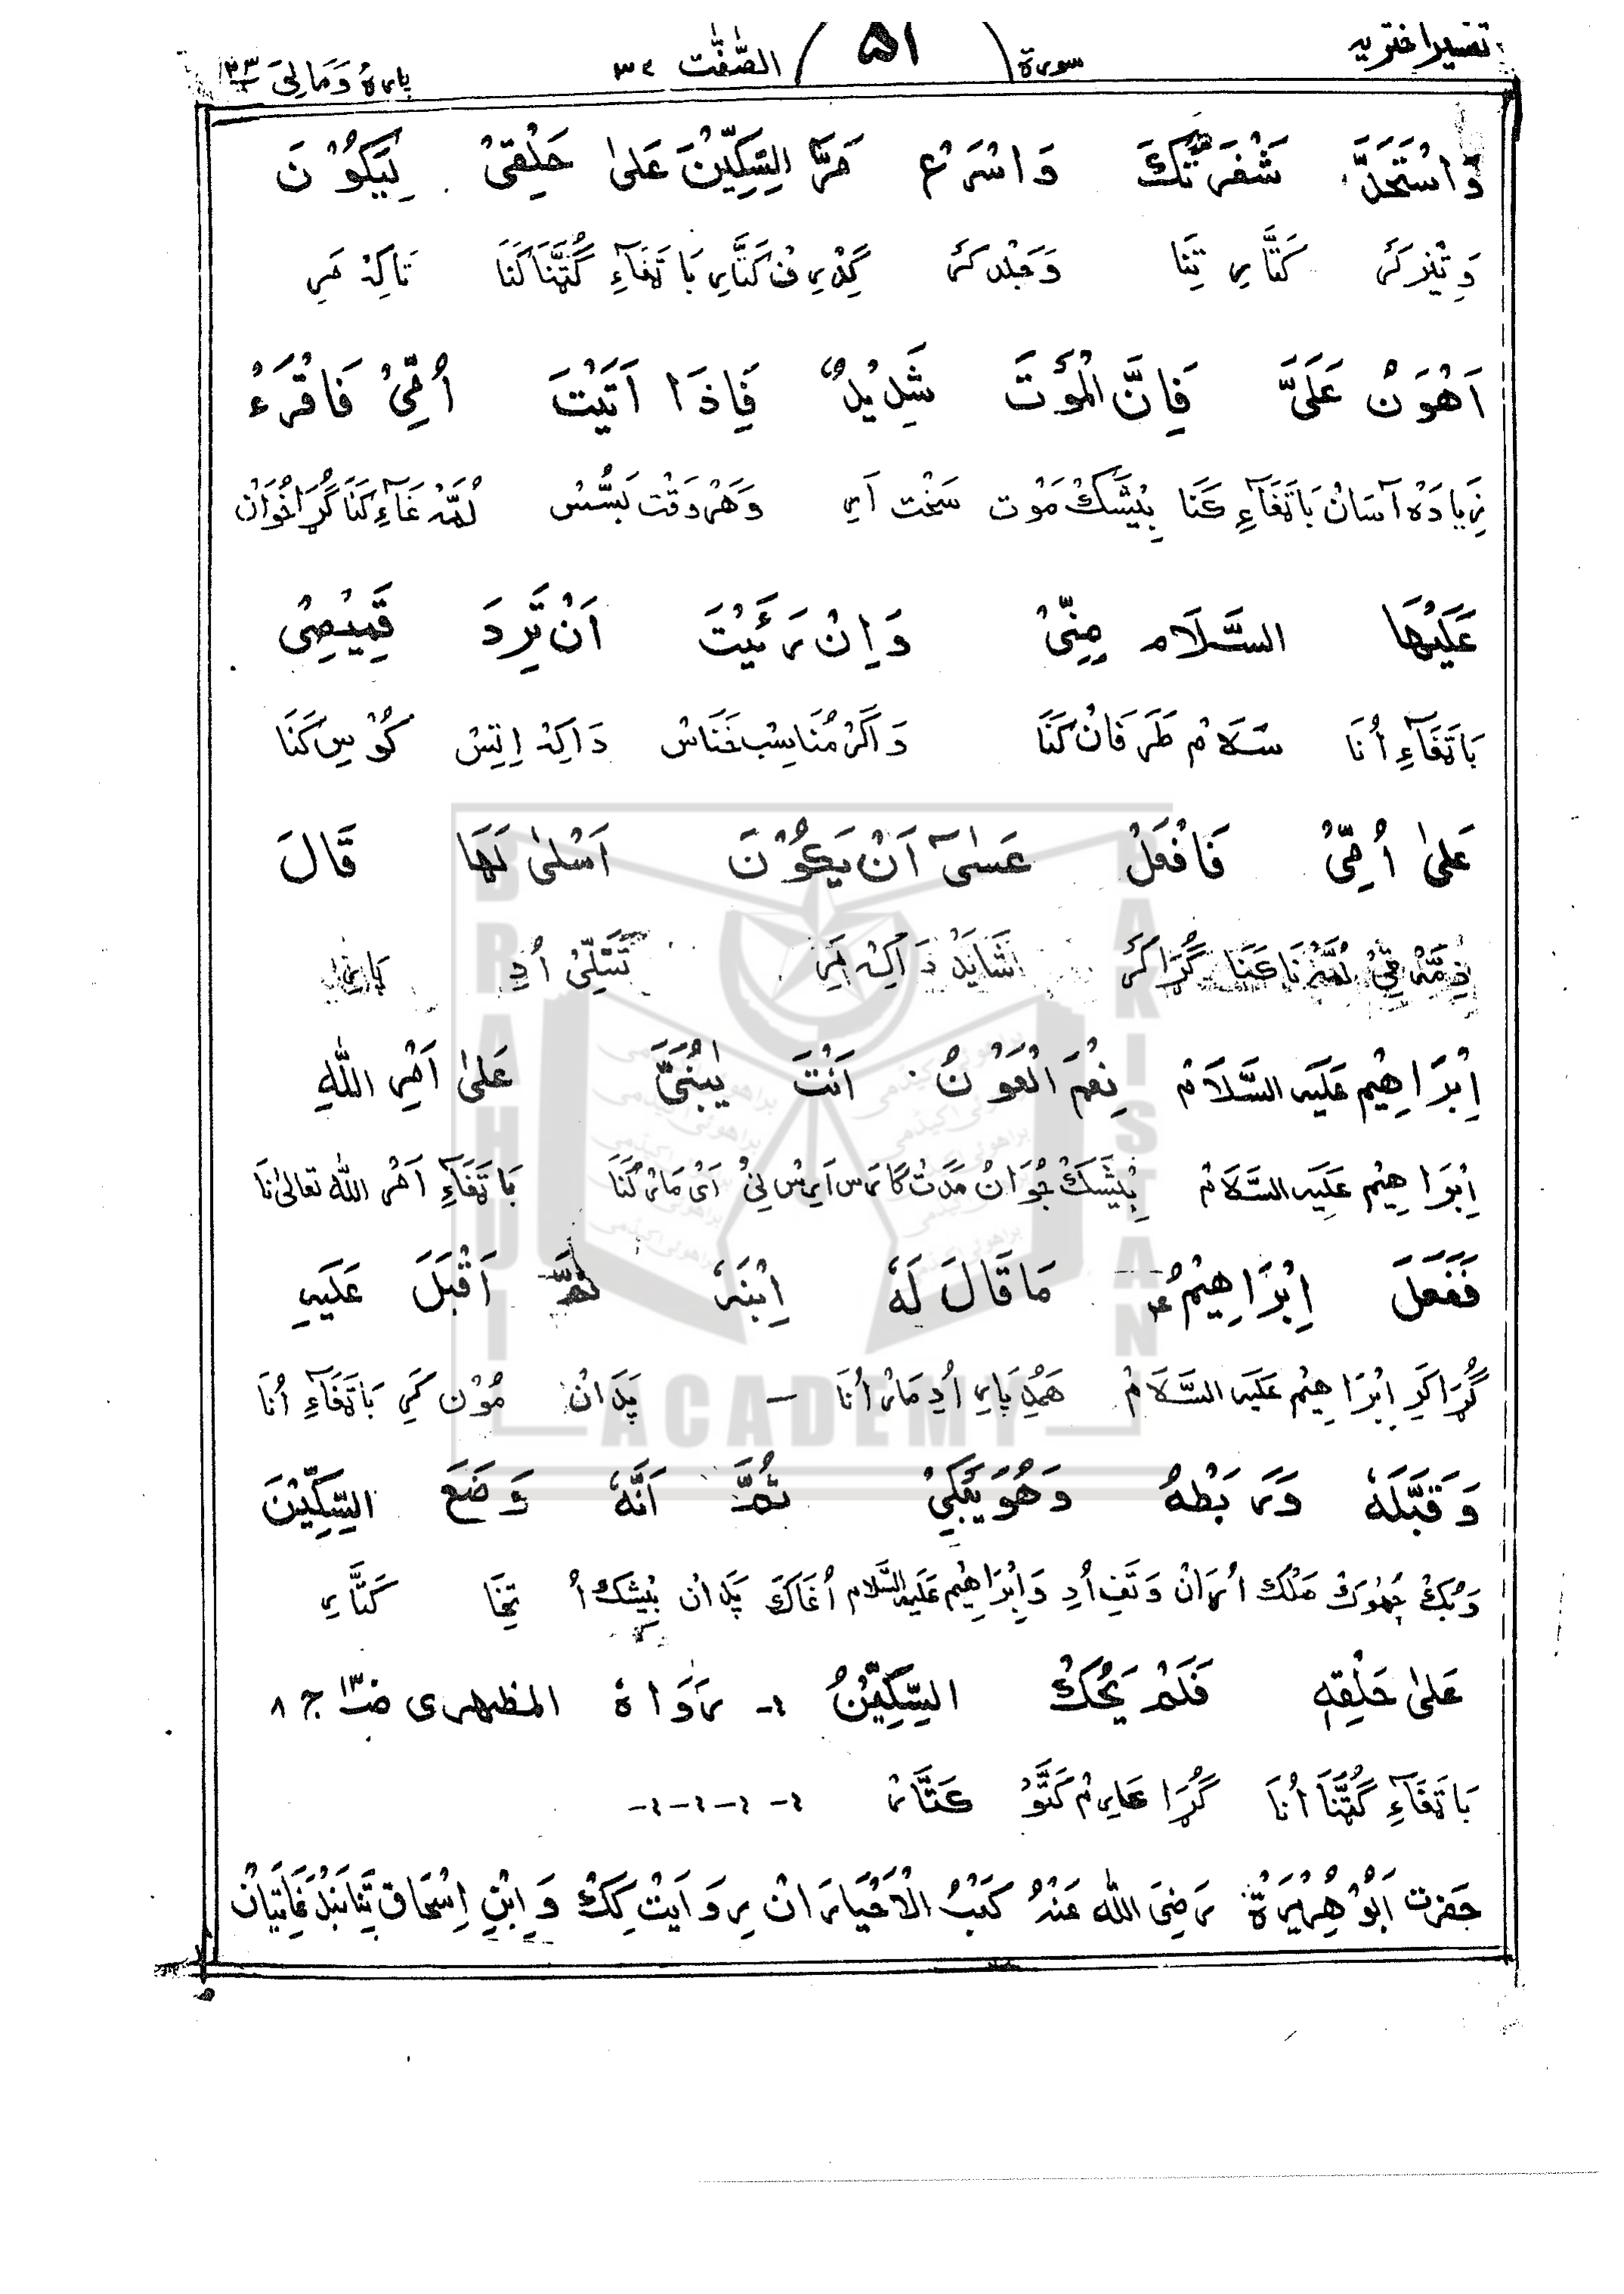 تفسیر اختریہ سورة ( ۵۱ ) الصّٰٓفّٰت ٣٧ پارہ وَمَالِیَ ۲۳
وَاسْتَحَدَّ شَفْرَتَكَ وَاسْرَعْ مَرَّ السِّكِّيْنَ عَلٰى حَلْقِىْ لِيَكُوْنَ
وَ تیز کَر کَتَّارِ تِنَا وَجَلْد کَر گِدْرِفْ کَتَّارِ بَا تَغَاۤءِ گُتَّنَا کَنَا تَاکِہْ مَرِ
اَهْوَنْ عَلَىَّ فَاِنَّ الْمَوْتَ شَدِيْدٌ فَاِذَا اَتَيْتَ اُمِّىْ فَاقْرَءْ
زِیَادَہْ آسَانْ بَاتَغَآءِ کَنَا بِیْشَکْ مَوْت سَخْت اَرِ وَهَرْوَقْت بَسُّسْ لُمَّہْ غَآءِ کَنَا گُڑَا خُوَانْ
عَلَيْهَا السَّلَام مِنِّىْ وَاِنْ رَئَيْتَ اَنْ تَرِدَ قَمِيْصِىْ
بَاتَغَآءِ اُنَا سَلَامْ طَرَفَانْ کَنَا وَاَگَرْ مُنَاسِبْ خَنَاسْ دَاکِہْ اِتِسْ کُوْسِ کَنَا
عَلٰى اُمِّىْ فَافْعَلْ عَسٰىٓ اَنْ يَكُوْنَ اَسْلٰى لَهَا قَالَ
لُمَّہْ نَا کَنَا گُڑَا کَر شَایَدْ دَاکِہْ مَرِ تَسَلِّیْ اُدِ پَارِ
اِبْرَاهِيْم عَلَيهِ السَّلَامْ نِعْمَ الْعَوْنُ اَنْتَ يٰبُنَىَّ عَلٰى اَمْرِ اللّٰهِ
اِبْرَاهِیْم عَلَیہِ السَّلَامْ بِیْشَکْ جُوَانْ مَدَتْ گَارَس اَرِسْ نِیْ اَیْ مَارْ کَنَا بَاتَغَآءِ اَمْرِ اللّٰه تعالیٰ نَا
فَفَعَلَ اِبْرَاهِيْمُ ع مَا قَالَ لَهٗ اِبْنَهٗ ثُمَّ اَقْبَلَ عَلَيهِ
گُڑَا کَرِ اِبْرَاهِیْم عَلَیہ السَّلَامْ هَمُڑِ پَارِ اُدِ مَارْ اُنَا - پَدَانْ مُوْن کَرِ بَاتَغَآءِ اُنَا
وَقَبَّلَهٗ وَرَبَطْهُ وَهُوَيَبْكِىْ ثُمَّ اَنَّهٗ وَضَعَ السِّكِّيْنَ
وَبُکْ جُهْوَکْ هَلْک اُرَانْ وَتَفِ اُدِ وَاِبْرَاهِیْم عَلَیہ السَّلَام اُغَاکَ پَدَانْ بِیْشَکْ اُ تِخَا کَتَّارِ
عَلٰى حَلْقِهٖ فَلَمْ يَحُكْ السِّكِّيْنُ -: رَوَاهُ المظهرى ج ٨
بَاتَغَآءِ گُتَّنَا اُنَا گُڑَا کَارِمْ کَتَّوْ کَتَّارْ -:-:-:-
حَضرت اَبُوْهُرَيْرَةْ رَضِىَ اللّٰه عَنْهُ كَعْبُ الْاَحْبَارَانْ رِوَايَتْ كِكْ وَاِبْنِ اِسْحَاق تِنَا بَنْدَغَاتِيَانْ
BRAHUI ACADEMY PAKISTAN